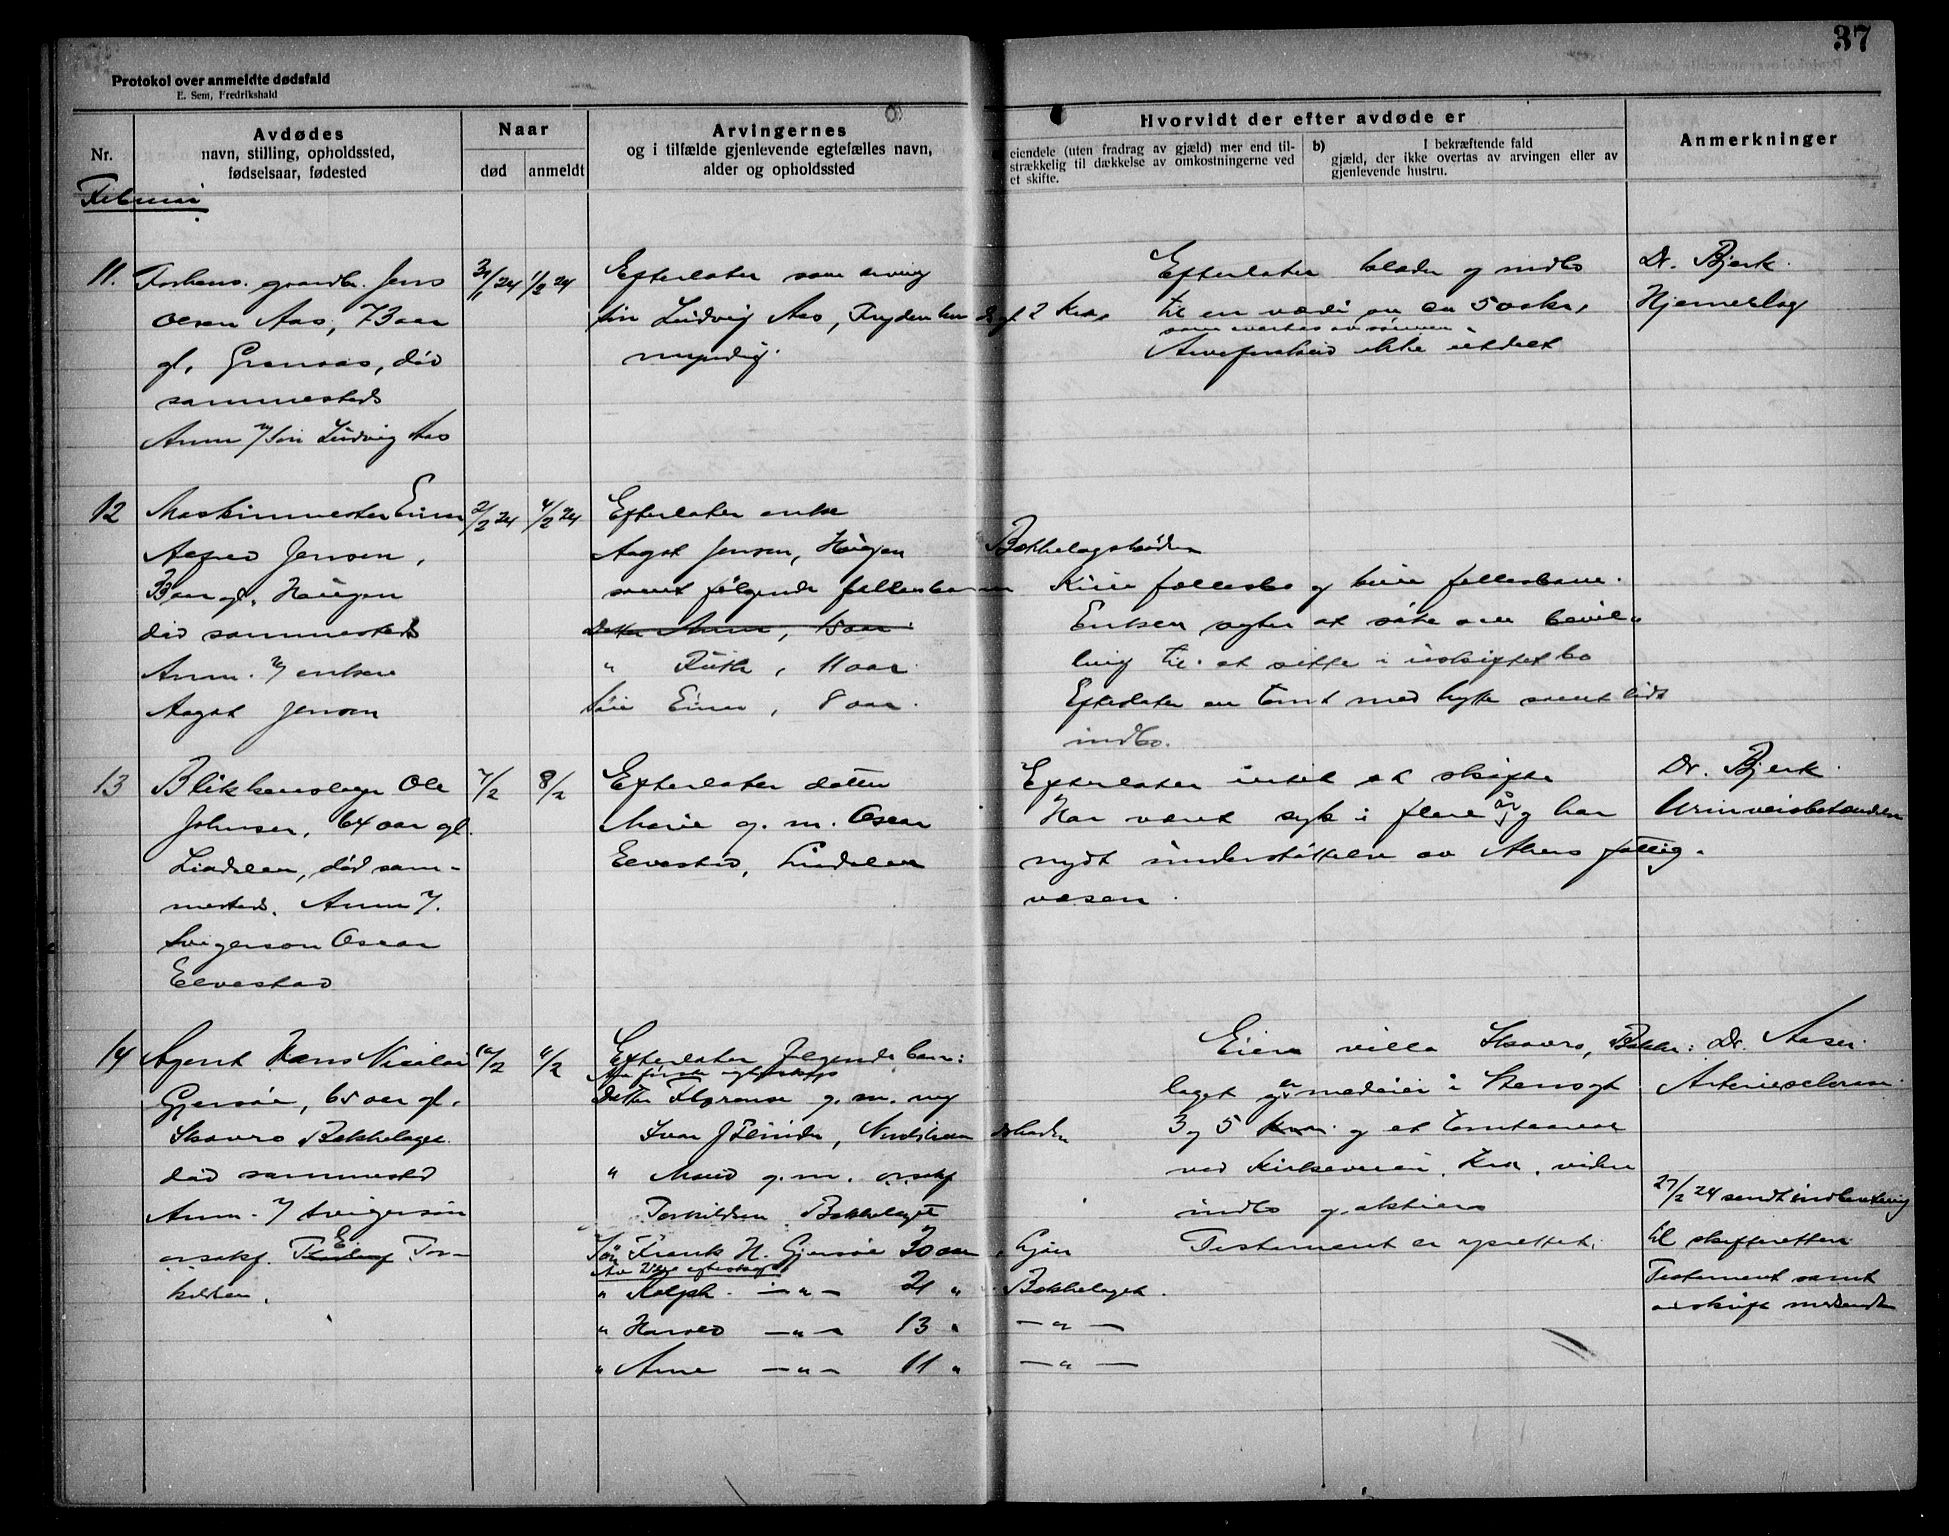 37
Protokol over anmeldte dødsfald
E. Sem, Fredrikshald
Nr.
Avdødes
navn, stilling, opholdssted,
fødselsaar, fødested
Naar
død
anmeldt
Arvingernes
og i tilfælde gjenlevende egtefælles navn,
alder og opholdssted
Hvorvidt der efter avdøde er
eiendele (uten fradrag av gjæld) mer end til-
strækkelig til dækkelse av omkostningerne ved
et skifte.
b) I bekræftende fald
gjæld, der ikke overtas av arvingen eller av
gjenlevende hustru.
Anmerkninger
Februar
11.
Forhenv. gaardbr. Jens
Olsen Aas, 73 aar
gl. Granaas, død
sammesteds
Anm v/ søn Ludvig Aas
31/1 24
1/2 24
Efterlater som arving
søn Ludvig Aas, 2 Kra,
myndig.
Efterlater klæder og indbo
til en værdi av ca 500 kr,
som overtas av sønnen.
Arveforskud ikke utdelt
Dr. Bjerk.
Hjerneslag
12
Maskinmester Einar
Alfred Jensen,
aar gl. Haugen
død sammesteds
Anm. v/ enken
Aagot Jensen
2/2 24
4/2 24
Efterlater enke
Aagot Jensen, Haugen Bækkelagshøiden
samt følgende fællesbarn
Datter , 15 aar
" Ruth, 11 aar.
Søn Einar, 8 aar.
Kun fællesbo og kun fellesbarn.
Enken agter at søke om bevil-
ling til at sitte i uskiftet bo
Efterlater en tomt med hytte samt lidt
indbo.
13
Blikkenslager Ole
Johnsen, 64 aar gl.
Lindalen, død sam-
mesteds. Anm v/.
Svigersøn Oscar
Elvestad
7/2
8/2
Efterlater datter
Marie g. m. Oscar
Elvestad, Lindalen
Efterlater intet at skifte
Har været syk i flere år og har
nydt understøttelse av Akers fattig-
væsen.
Dr. Bjerk.
Urinveisbetændelse
14
Agent Hans Nicolai
Gjersøe, 65 aar gl.
Skovro Bækkelaget.
død sammested
Anm. v/ svigersøn
orsakf. E. Tor-
kildsen.
10/2
11/2
Efterlater følgende barn:
Av første egteskap
Datter Florence g. m. ing
Ivar , Nordstrandshøiden
" Maud g. m. orsakf
Torkildsen, Bækkelaget
Søn Frank H. Gjersøe 30 aar,
Av 2det egteskap
" Ralph —"— 21 " Bækkelaget.
" Harald —"— 13 " —"—
" Arne —"— 11 " —"—
Eier villa Skovro, Bække-
laget og er medeier i Stensgt
3 og 5 Kra. og et tomteareal
ved Kirkeveien, Kra, viden
indbo og aktier
Testament er oprettet.
Dr. Aaser.
Arteriesclerose.
27/2 24 sendt indberetning
til skifteretten.
Testament samt
avskrift medsendt